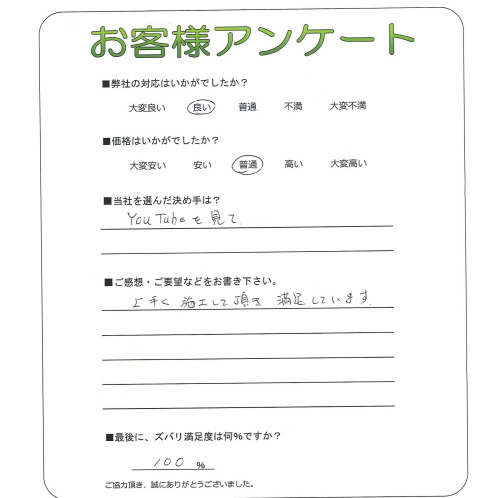 お客様アンケート
■弊社の対応はいかがでしたか？
大変良い 良い 普通 不満 大変不満
■価格はいかがでしたか？
大変安い 安い 普通 高い 大変高い
■当社を選んだ決め手は？
YouTubeを見て.
■ご感想・ご要望などをお書き下さい。
上手く施工して頂き 満足しています.
■最後に、ズバリ満足度は何%ですか？
100 %
ご協力頂き、誠にありがとうございました。